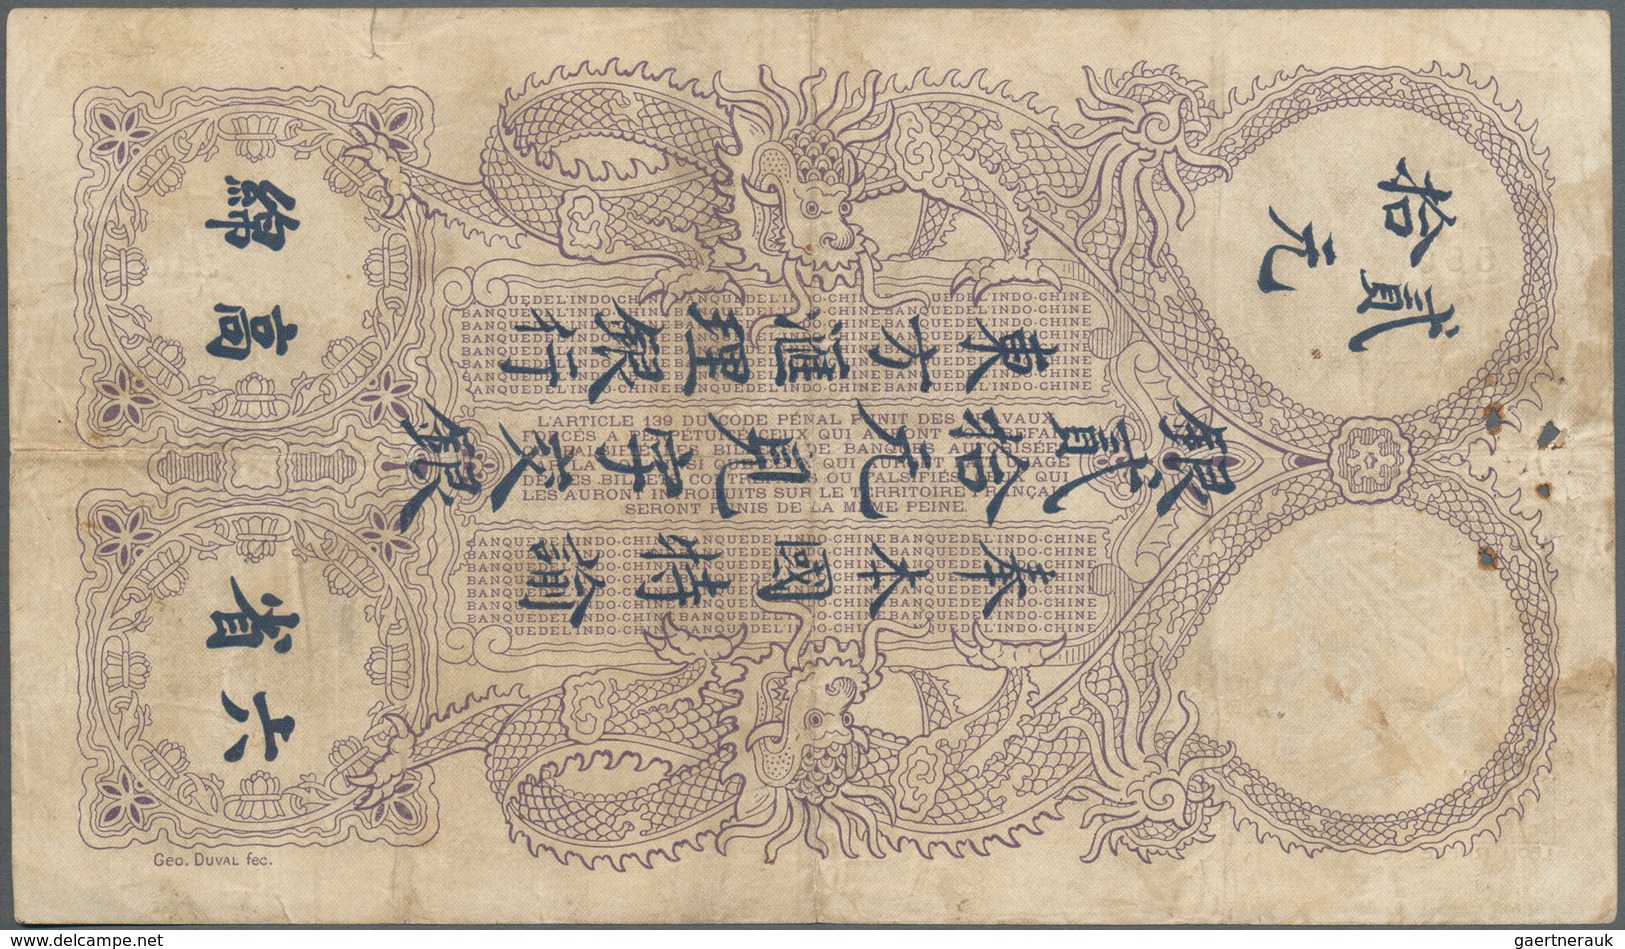 貳拾
元
奉本國特諭
銀貳拾元見字交銀
東方滙理銀行
六省高綿
BANQUE DE L'INDO-CHINE BANQUE DE L'INDO-CHINE BANQUE DE L'INDO-CHINE
L'ARTICLE 139 DU CODE PÉNAL PUNIT DES TRAVAUX
FORCÉS A PERPÉTUITÉ CEUX QUI AURONT CONTREFAIT
OU FALSIFIÉ LES BILLETS DE BANQUES AUTORISÉES
PAR LA LOI, AINSI QUE CEUX QUI AURONT FAIT USAGE
DE CES BILLETS CONTREFAITS OU FALSIFIÉS, OU QUI
LES AURONT INTRODUITS SUR LE TERRITOIRE FRANÇAIS
SERONT PUNIS DE LA MÊME PEINE.
BANQUE DE L'INDO-CHINE BANQUE DE L'INDO-CHINE BANQUE DE L'INDO-CHINE
GEO. DUVAL fec.
www.delcampe.net
gaertnerauk